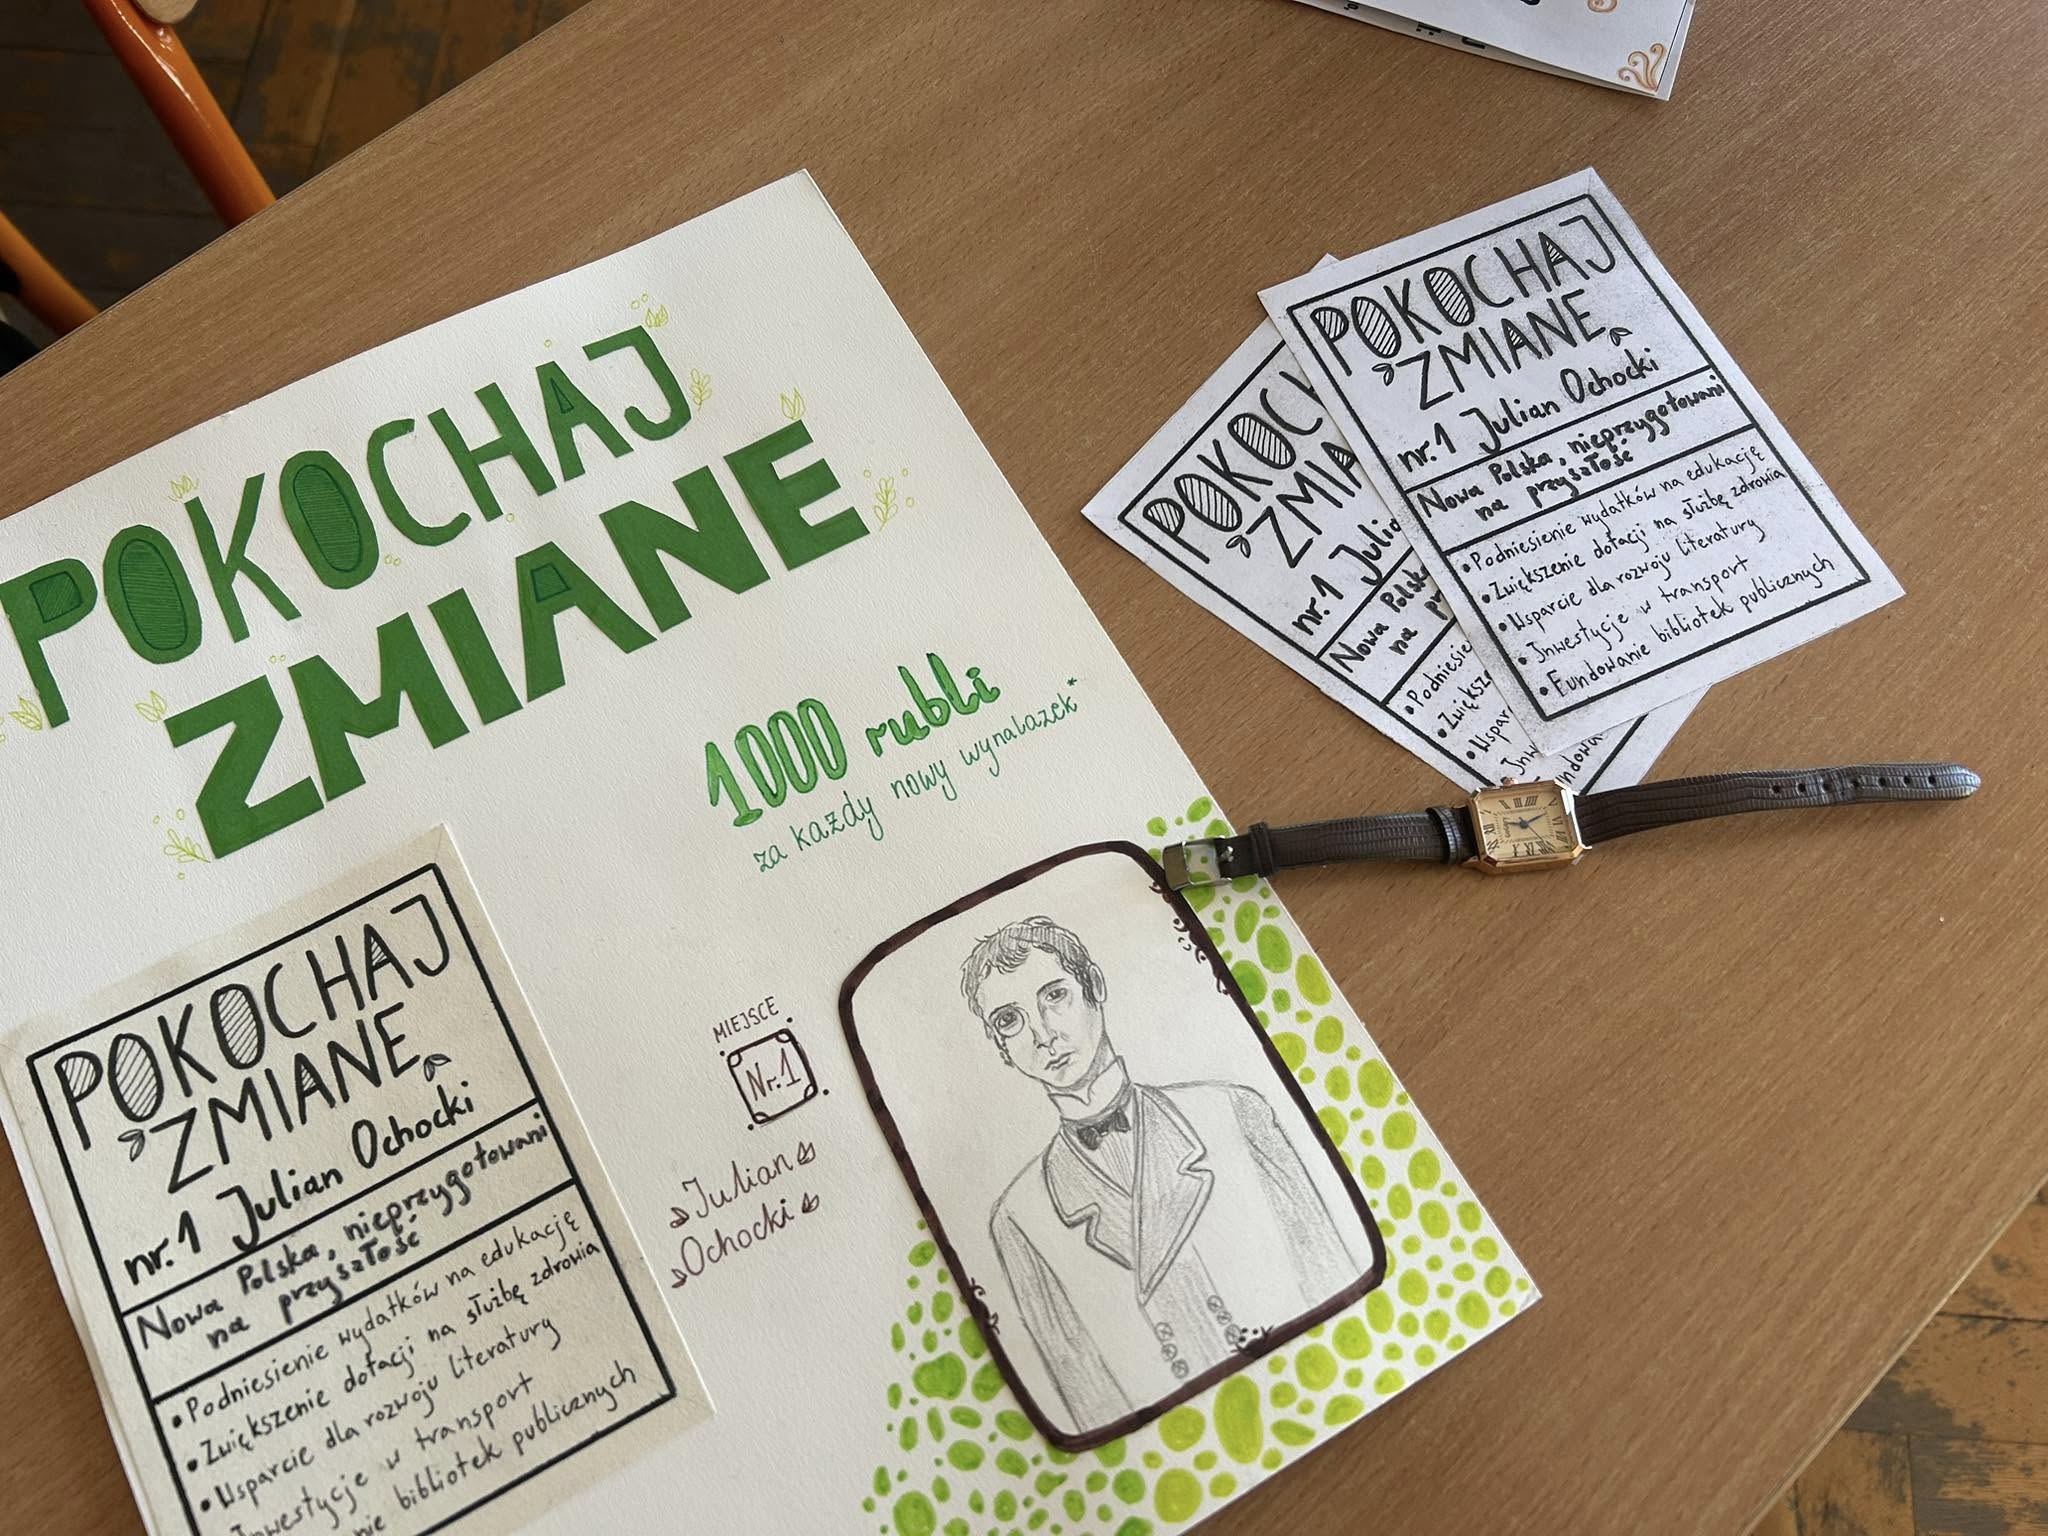 POKOCHAJ
ZMIANE
1000 rubli
za każdy nowy wynalazek*
MIEJSCE
Nr.1
Julian
Ochocki
POKOCHAJ
ZMIANE
nr.1 Julian Ochocki
Nowa Polska, nieprzygotowani
na przyszłość
•Podniesienie wydatków na edukację
•Zwiększenie dotacji na służbę zdrowia
•Wsparcie dla rozwoju literatury
Inwestycje w transport
bibliotek publicznych
POKOCHAJ
ZMIANE
nr.1 Julian Ochocki
Nowa Polska, nieprzygotowani
na przyszłość
•Podniesienie wydatków na edukację
•Zwiększenie dotacji na służbę zdrowia
•Wsparcie dla rozwoju literatury
•Inwestycje w transport
•Fundowanie bibliotek publicznych
POKOCH
ZMIA
nr.1 Julia
Nowa Polska
na